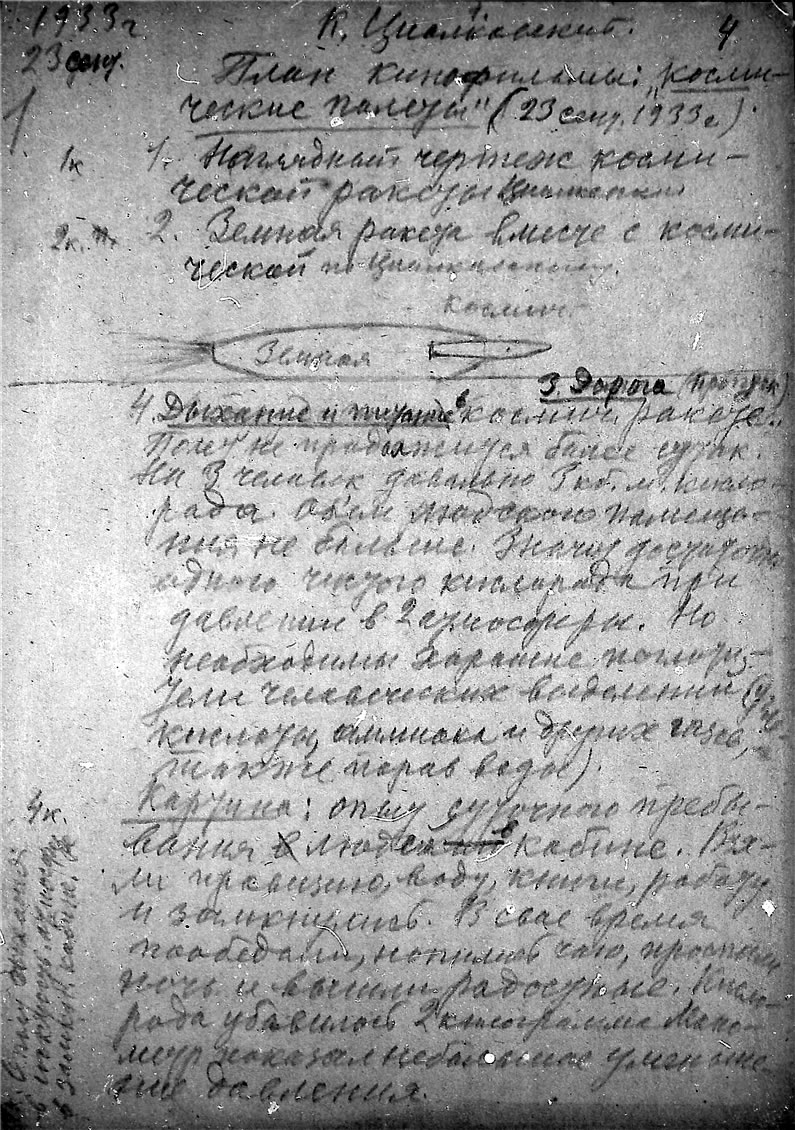 1933 г. К. Циолковский. 4
23 сент.
План кинофильмы: „Косми-
ческие полеты" (23 сент. 1933 г.)
1к 1. Наглядный чертеж косми-
ческой ракеты Циолковский
2к. 2. Земная ракета вместе с косми-
ческой по Циолковскому.
Космич.
Земная
3. Дорога
4. Дыхание и питание в космич. ракете.
Полет не продолжится более суток.
На 3 человек довольно 3 кб. м. кисло-
рода. Объем людского помеще-
ния не больше. Значит достаточно
одного чистого кислорода при
давлении в 2 атмосферы. Но
необходимы хорошие поглоти-
тели человеческих выделений (угле-
кислоты, аммиака и других газов,
также паров воды).
4к. Картина: опыт суточного пребы-
вания людей в кабине. Взя-
ли провизию, воду, книги, работу
и замкнулись. В свое время
пообедали, напились чаю, проспали
ночь и вышли радостные. Кисло-
рода убавилось 2 килограмма. Мано-
метр показал небольшое уменьше-
ние давления.
Опыт дыхания
в замкн. кабине.